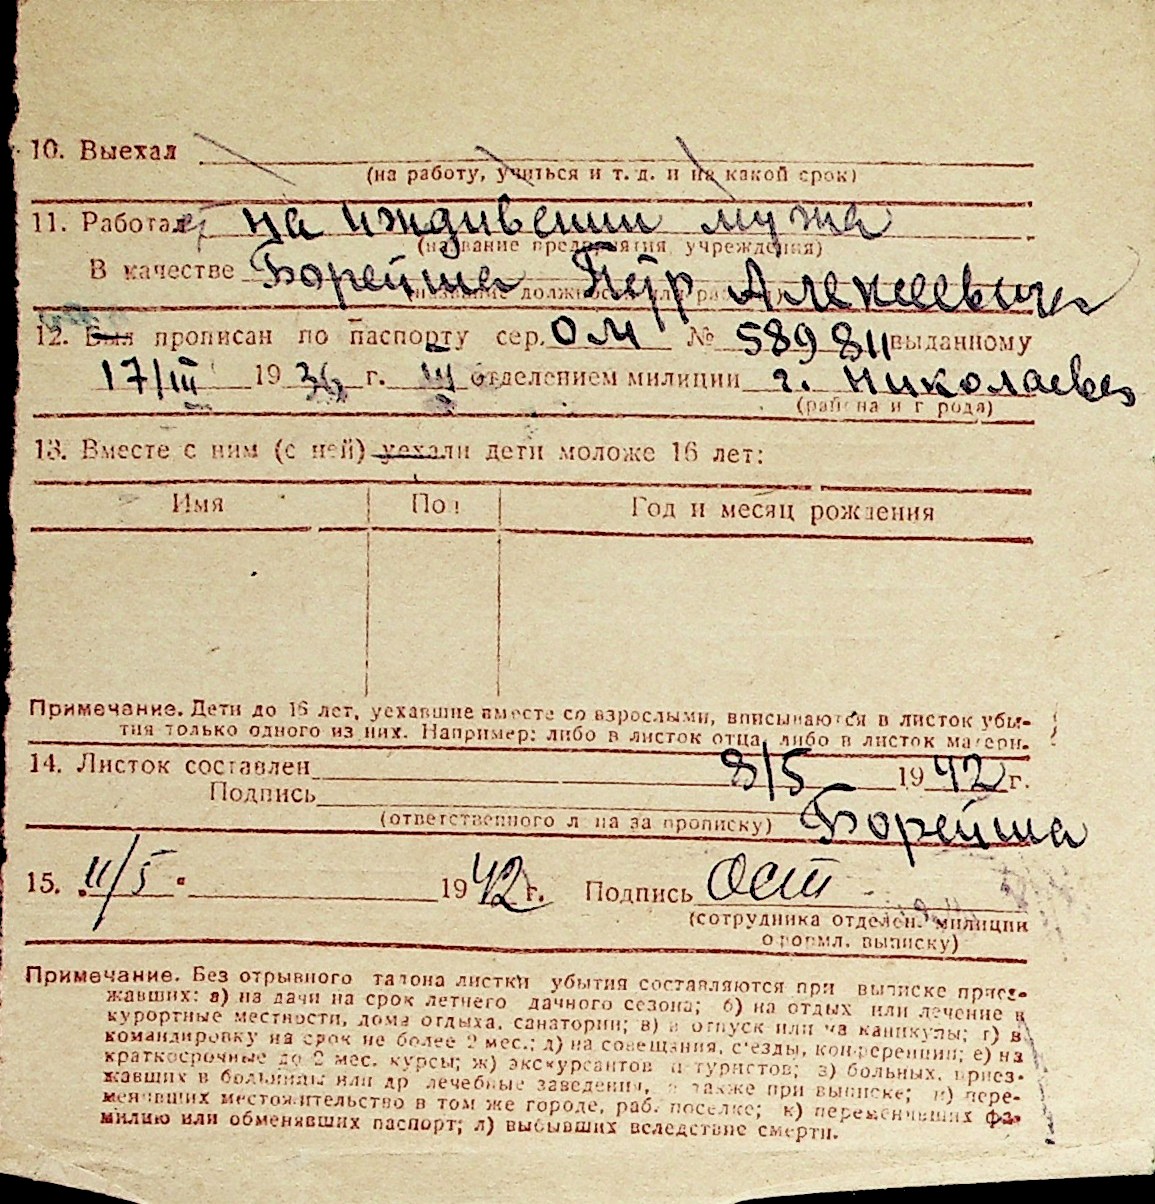 10. Выехал
(на работу, учиться и т. д. и на какой срок)
11. Работает на иждивении мужа
(название предприятия, учреждения)
В качестве Борейша Пётр Алексеевич
(название должности или работы)
12. Был прописан по паспорту сер. ОМ № 589811 выданному
17/III 1936 г. III отделением милиции г. Николаева
(района и города)
13. Вместе с ним (с ней) уехали дети моложе 16 лет:
Имя Пол Год и месяц рождения
Примечание. Дети до 16 лет, уехавшие вместе со взрослыми, вписываются в листок убы-
тия только одного из них. Например: либо в листок отца, либо в листок матери.
14. Листок составлен 8/5 1942 г.
Подпись Борейша
(ответственного лица за прописку)
15. 11/5 1942 г. Подпись Ост
(сотрудника отделен. милиции
оформл. выписку)
Примечание. Без отрывного талона листки убытия составляются при выписке приез-
жавших: а) на дачи на срок летнего дачного сезона; б) на отдых или лечение в
курортные местности, дома отдыха, санатории; в) в отпуск или на каникулы; г) в
командировку на срок не более 2 мес.; д) на совещания, съезды, конференции; е) на
краткосрочные до 2 мес. курсы; ж) экскурсантов и туристов; з) больных, приез-
жавших в больницы или др лечебные заведения, а также при выписке; и) пере-
менивших местожительство в том же городе, раб. поселке; к) переменивших фа-
милию или обменявших паспорт; л) выбывших вследствие смерти.